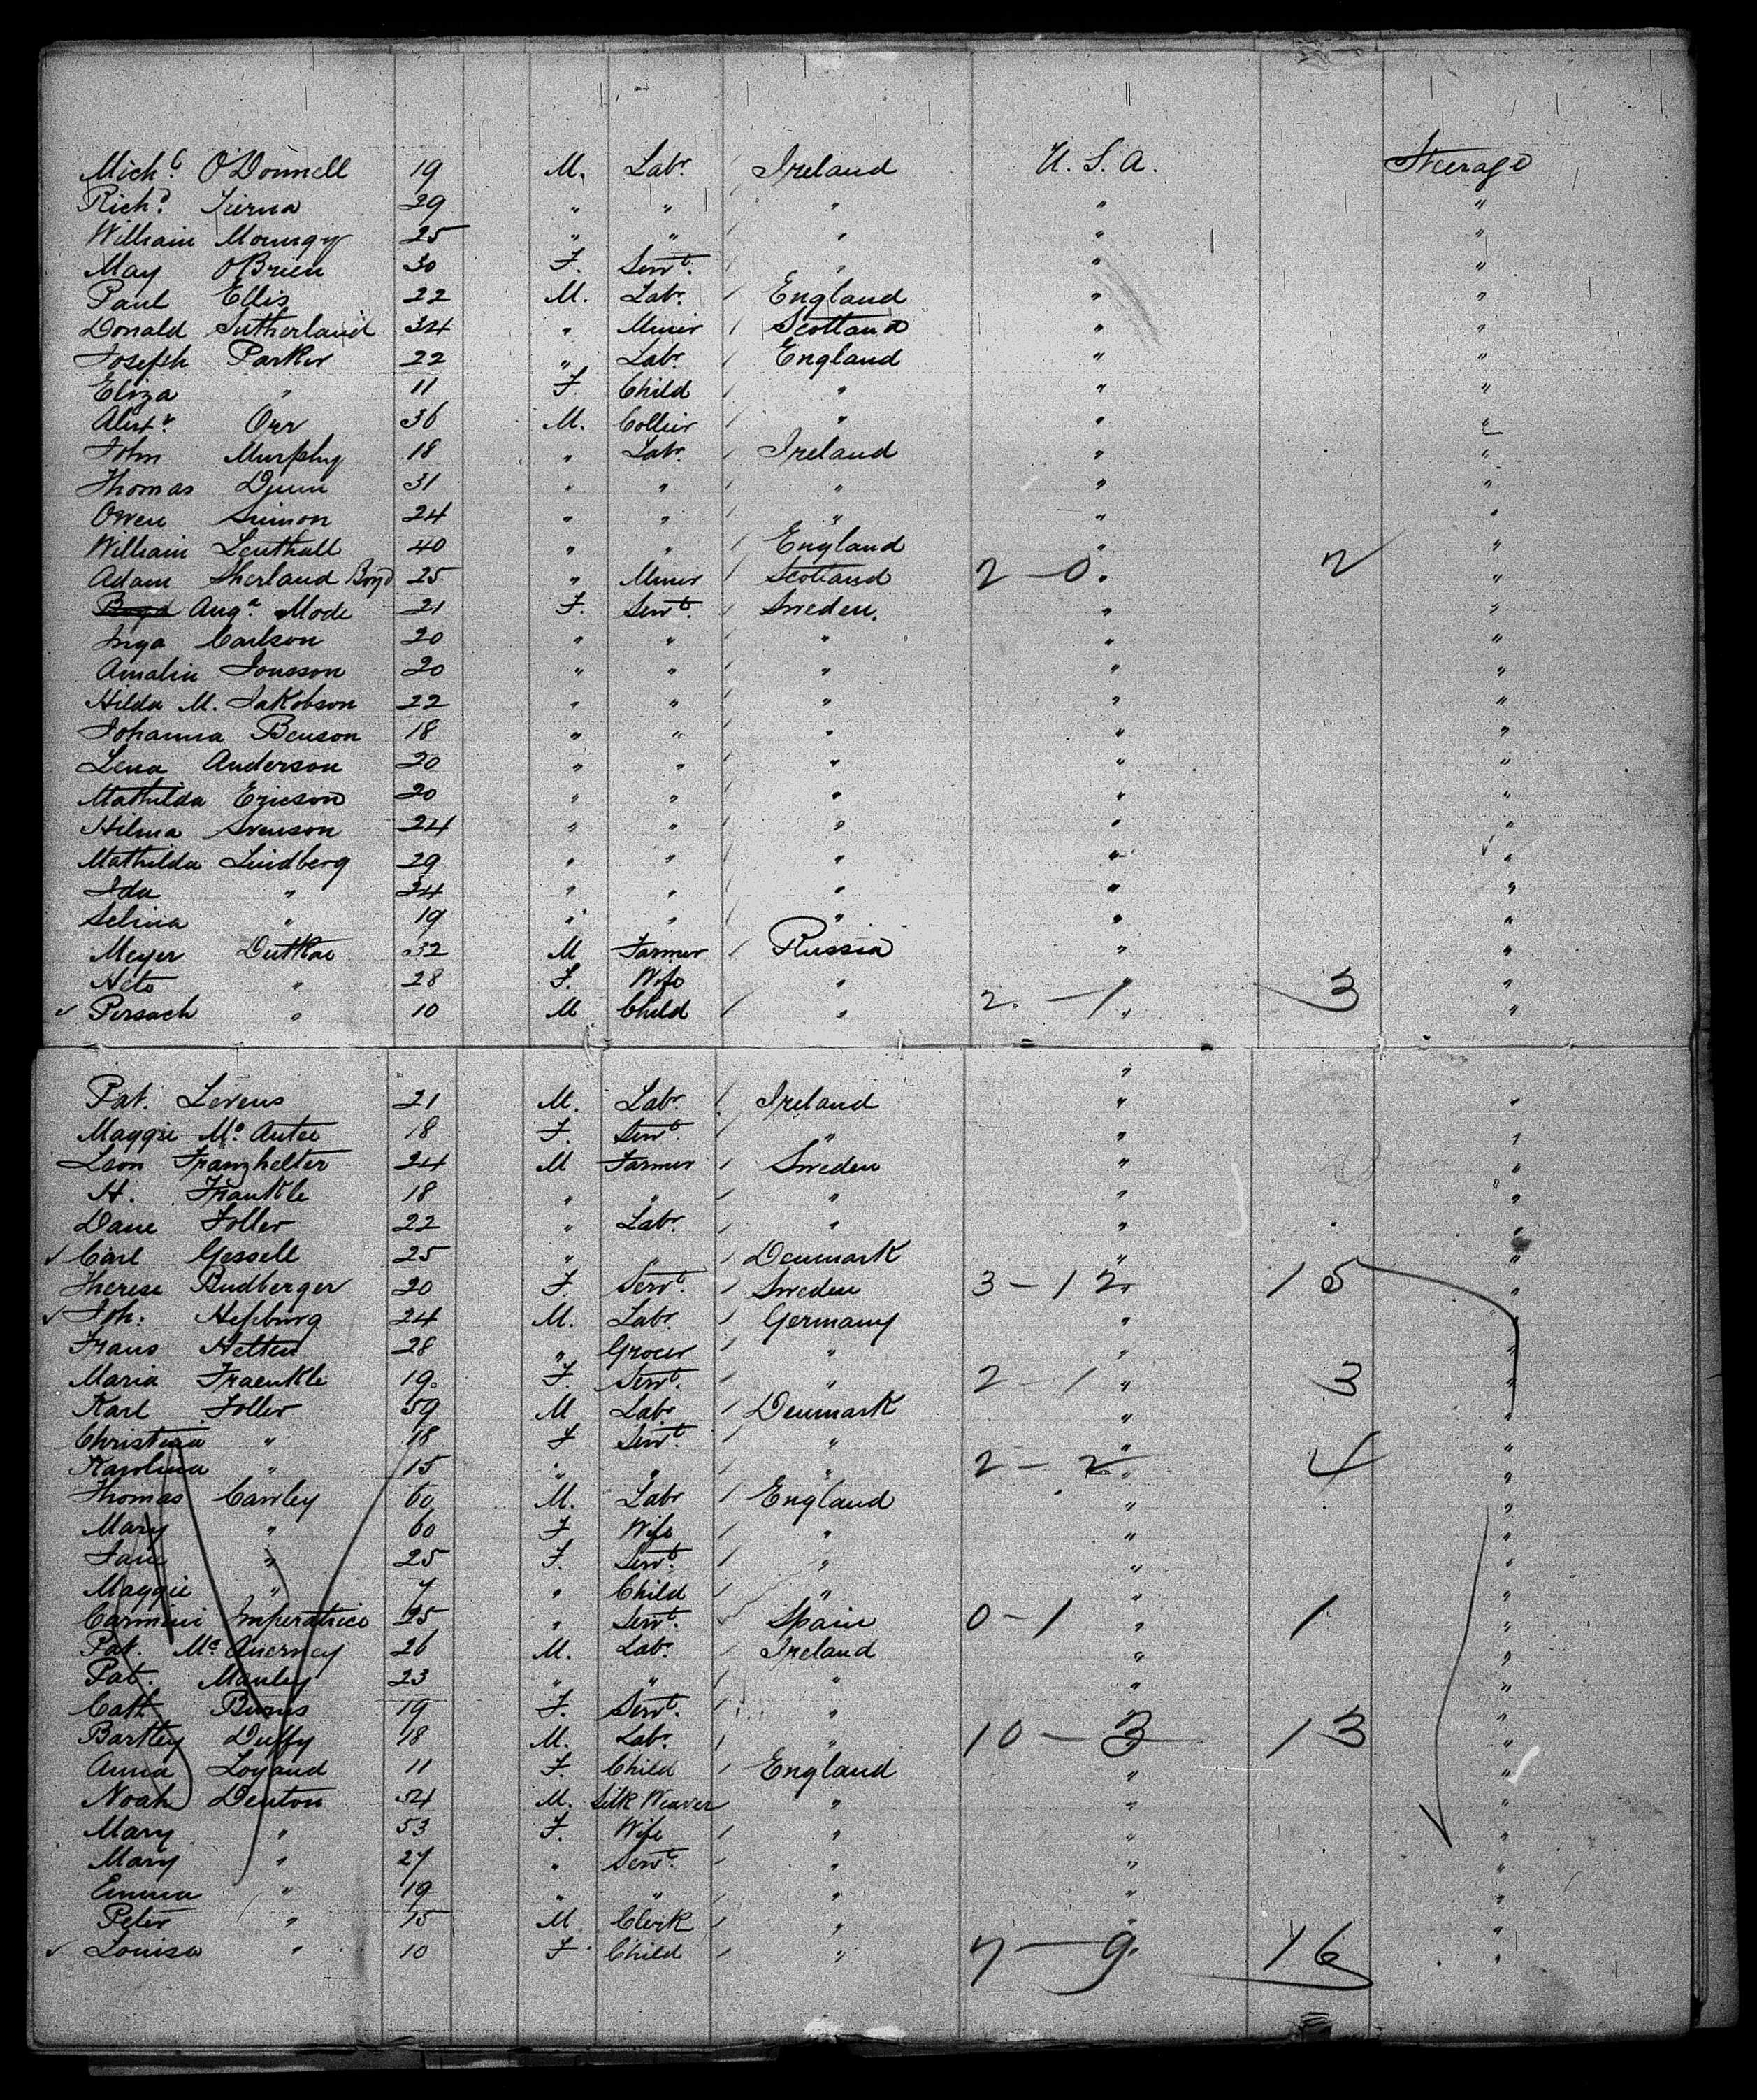 Mich.l O'Donnell 19 M. Labr. Ireland U.S.A. Steerage
Rich.d 29 " " " " "
William 25 " " " " "
May O'Brien 30 F. Servt. " " "
Paul Ellis 22 M. Labr. England " "
Donald Sutherland 34 " Miner Scotland " "
Joseph Parker 22 " Labr. England " "
Eliza " 11 F. Child " " "
Alexr. Orr 36 M. Collier " " "
John Murphy 18 " Labr. Ireland " "
Thomas Dunn 31 " " " " "
Owen 24 " " " " "
William Lenthall 40 " " England " "
Adam Sherland Boyd 25 " Miner Scotland 2 - 0 " 2 "
Boyd Auga. Mode 21 F. Servt. Sweden. " "
Inga Carlson 20 " " " " "
Amalia Jonsson 20 " " " " "
Hilda M. Jakobson 22 " " " " "
Johanna Benson 18 " " " " "
Lena Anderson 20 " " " " "
Mathilda Ericson 20 " " " " "
Hilma Svenson 24 " " " " "
Mathilda Lindberg 29 " " " " "
Ida " 24 " " " " "
Selina " 19 " " " " "
Meyer 32 M Farmer Russia " "
" 28 F. Wife " " "
Persach " 10 M Child " 2 - 1 " 3 "
"
Pat. Levens 21 M. Labr. Ireland " "
Maggie Mc 18 F. Servt. " " "
Leon 24 M Farmer Sweden " "
H. Frankle 18 " " " " "
Dane Foller 22 " Labr. " " "
Carl Gessell 25 " " Denmark " "
Therese Budberger 20 F. Servt. Sweden 3 - 12 " 15 "
Joh. 24 M. Labr. Germany " "
Frans 28 " Grocer " " "
Maria Fraenkle 19 F. Servt. " 2 - 1 " 3 "
Karl Foller 59 M Labr. Denmark " "
Christina " 18 F Servt. " " "
Karolina " 15 " " " 2 - 2 " 4 "
Thomas Cawley 60 M. Labr England " "
Mary " 60 F Wife " " "
Jane " 25 F. Servt. " " "
Maggie " 7 " Child " " "
Carmini Imperatrice 25 " Servt. Spain 0 - 1 " 1 "
Pat. Mc Anerney 26 M. Labr. Ireland " "
Pat. Manley 23 " " " " "
Cath Burns 19 F. Servt. " " "
Bartley Duffy 18 M. Labr. " 10 - 3 " 13 "
Anna 11 F. Child England " "
Noah Denton 54 M. Silk Weaver " " "
Mary " 53 F. Wife " " "
Mary " 27 " Servt. " " "
Emma " 19 " " " " "
Peter " 15 M Clerk " " "
Louisa " 10 F. Child " 7 - 9 " 16 "